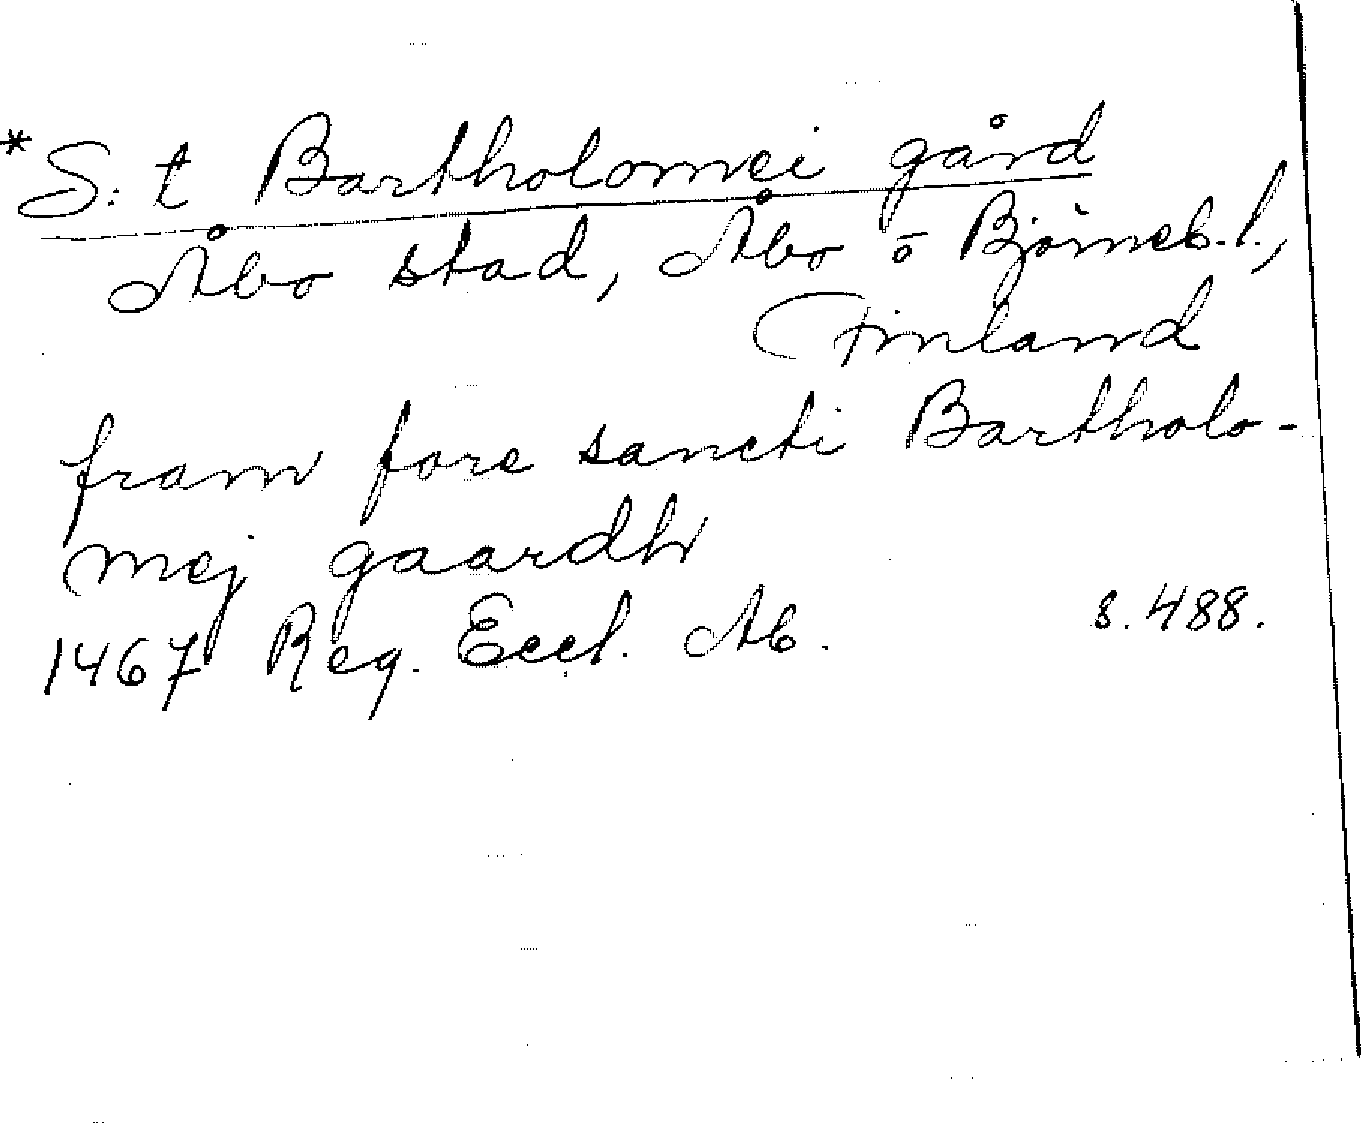 *S:t Bartholomei gård
Åbo stad, Åbo o Björneb. l.,
Finland
fram fore sancti Bartholo-
mej gaardh
1467 Reg. Eccl. Ab. s. 488.